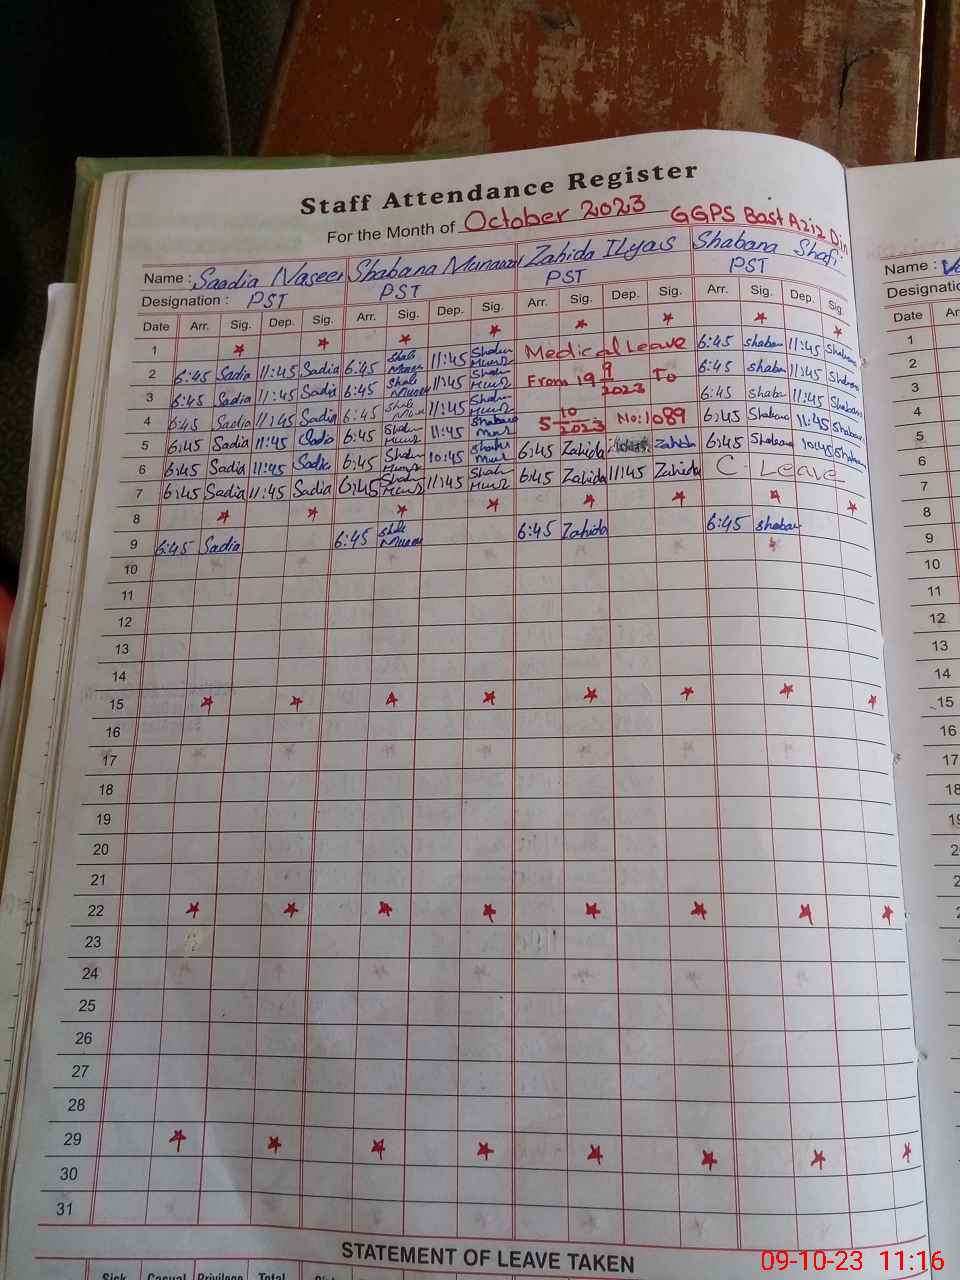 Staff Attendance Register
For the Month of October 2023 GGPS Bast Aziz Din
Name : Saadia Naseer Shabana Munawar Zahida Ilyas Shabana Shafi
Designation : PST PST PST PST
Date Arr. Sig. Dep. Sig. Arr. Sig. Dep. Sig. Arr. Sig. Dep. Sig. Arr. Sig. Dep. Sig.
1
2 6:45 Saadia 11:45 Sadia 6:45 11:45 Medical Leave 6:45 shaban 11:45 Shabana
3 6:45 Sadia 11:45 Sadia 6:45 11:45 From 19 9/2023 To 6:45 shaban 11:45 Shabana
4 6:45 Sadia 11:45 Sadia 6:45 11:45 5 10/2023 No:1089 6:45 shaba 11:45 Shabana
5 6:45 Sadia 11:45 Sadia 6:45 11:45 6:45 Zahida Zahida 6:45 Shabana 11:45 Shabana
6 6:45 Sadia 11:45 Sadia 6:45 10:45 6:45 Zahida 11:45 Zahida 6:45 Shabana 10:45 Shaban
7 6:45 Sadia 11:45 Sadia 6:45 11:45 C. Leave
8
9 6:45 Sadia 6:45 6:45 Zahida 6:45 shaban
10
11
12
13
14
15
16
17
18
19
20
21
22
23
24
25
26
27
28
29
30
31
STATEMENT OF LEAVE TAKEN
Sick Casual Privilege Total
Name :
Date
1
2
3
4
5
6
7
8
9
10
11
12
13
14
15
16
17
18
09-10-23 11:16